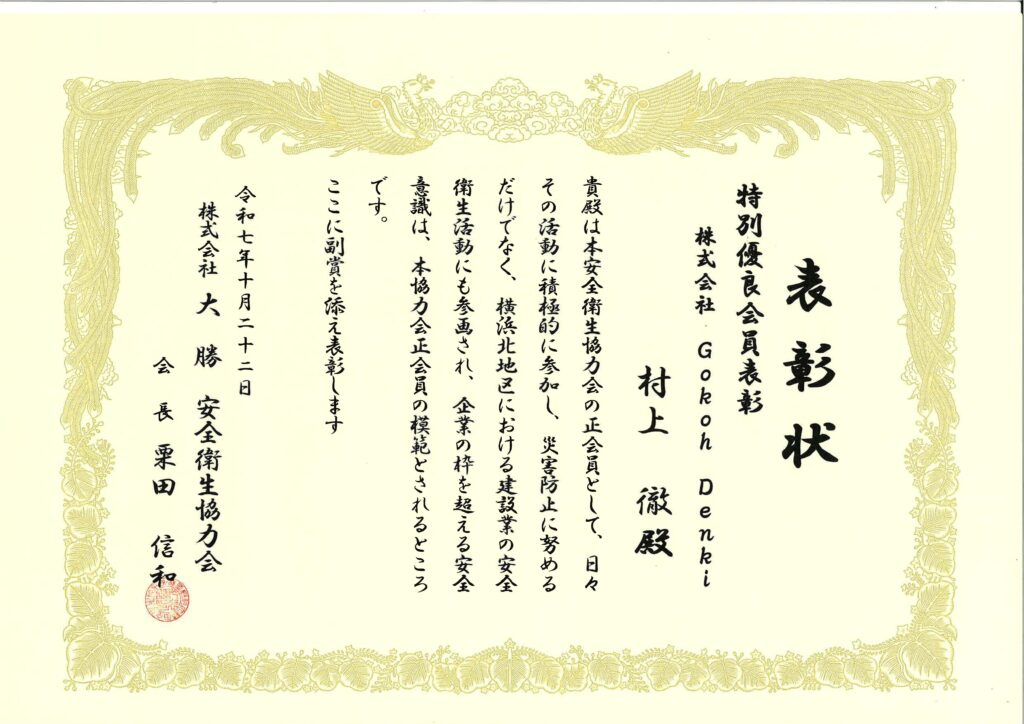 表彰状
特別優良会員表彰
株式会社 Gokoh Denki
村上 徹殿
貴殿は本安全衛生協力会の正会員として、日々
その活動に積極的に参加し、災害防止に努める
だけでなく、横浜北地区における建設業の安全
衛生活動にも参画され、企業の枠を超える安全
意識は、本協力会正会員の模範とされるところ
です。
ここに副賞を添え表彰します
令和七年十月二十二日
株式会社 大勝 安全衛生協力会
会長 栗田 信和